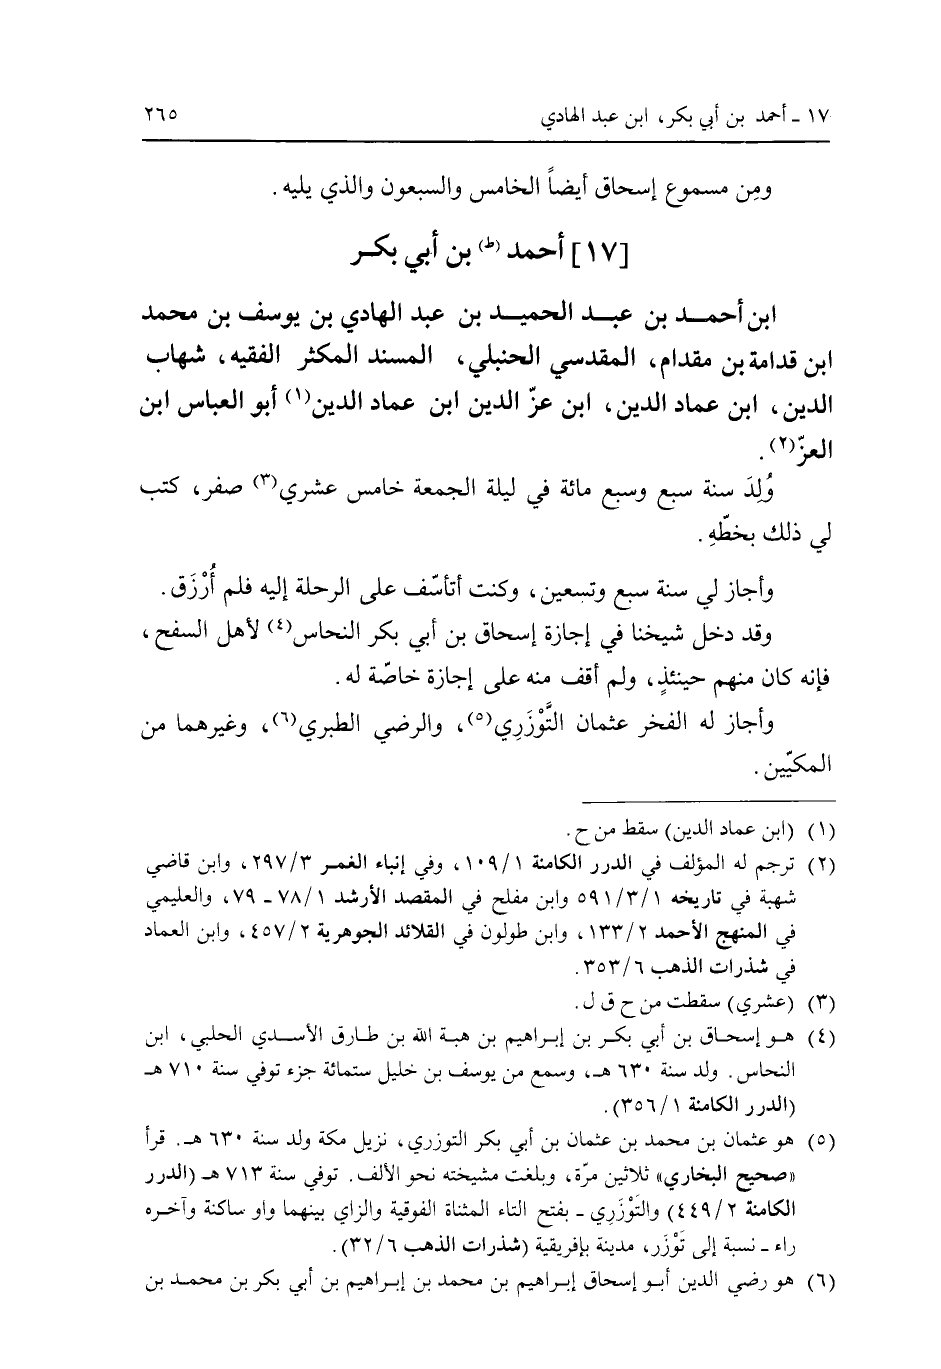 ١٧ ـ أحمد بن أبي بكر، ابن عبد الهادي ٢٦٥
ومِن مسموع إسحاق أيضاً الخامس والسبعون والذي يليه.
[١٧] أحمد (ط) بن أبي بكر
ابن أحمد بن عبد الحميد بن عبد الهادي بن يوسف بن محمد
ابن قدامة بن مقدام، المقدسي الحنبلي، المسند المكثر الفقيه، شهاب
الدين، ابن عماد الدين، ابن عزّ الدين ابن عماد الدين(١) أبو العباس ابن
العزّ(٢).
وُلِدَ سنة سبع وسبع مائة في ليلة الجمعة خامس عشري(٣) صفر، كتب
لي ذلك بخطّهِ.
وأجاز لي سنة سبع وتسعين، وكنت أتأسّف على الرحلة إليه فلم أُرْزَق.
وقد دخل شيخنا في إجازة إسحاق بن أبي بكر النحاس(٤) لأهل السفح،
فإنه كان منهم حينئذٍ، ولم أقف منه على إجازة خاصّة له.
وأجاز له الفخر عثمان التَّوْزَرِي(٥)، والرضي الطبري(٦)، وغيرهما من
المكيّين.
(١) (ابن عماد الدين) سقط من ح.
(٢) ترجم له المؤلف في الدرر الكامنة ١/ ١٠٩، وفي إنباء الغمر ٣/ ٢٩٧، وابن قاضي
شهبة في تاريخه ١/ ٣/ ٥٩١ وابن مفلح في المقصد الأرشد ١/ ٧٨ ـ ٧٩، والعليمي
في المنهج الأحمد ٢/ ١٣٣، وابن طولون في القلائد الجوهرية ٢/ ٤٥٧، وابن العماد
في شذرات الذهب ٦/ ٣٥٣.
(٣) (عشري) سقطت من ح ق ل.
(٤) هو إسحاق بن أبي بكر بن إبراهيم بن هبة الله بن طارق الأسدي الحلبي، ابن
النحاس. ولد سنة ٦٣٠ هـ، وسمع من يوسف بن خليل ستمائة جزء توفي سنة ٧١٠ هـ
(الدرر الكامنة ١/ ٣٥٦).
(٥) هو عثمان بن محمد بن عثمان بن أبي بكر التوزري، نزيل مكة ولد سنة ٦٣٠ هـ. قرأ
«صحيح البخاري» ثلاثين مرّة، وبلغت مشيخته نحو الألف. توفي سنة ٧١٣ هـ (الدرر
الكامنة ٢/ ٤٤٩) والتَوْزَرِي ـ بفتح التاء المثناة الفوقية والزاي بينهما واو ساكنة وآخره
راء ـ نسبة إلى تَوْزَر، مدينة بإفريقية (شذرات الذهب ٦/ ٣٢).
(٦) هو رضي الدين أبو إسحاق إبراهيم بن محمد بن إبراهيم بن أبي بكر بن محمد بن